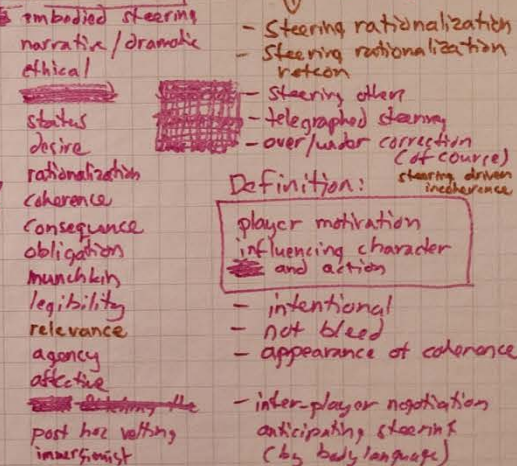 embodied steering
narrative/dramatic
ethical
status
desire
rationalization
coherence
consequence
obligation
munchkin
legibility
relevance
agency
affective
post hoc vetting
immersionist
- Steering rationalization
- Steering rationalization
retcon
- Steering others
- telegraphed steering
- over/under correction
(of course)
steering driven
incoherence
Definition:
player motivation
influencing character
and action
- intentional
- not bleed
- appearance of coherence
- inter-player negotiation
anticipating steering
(by body language)